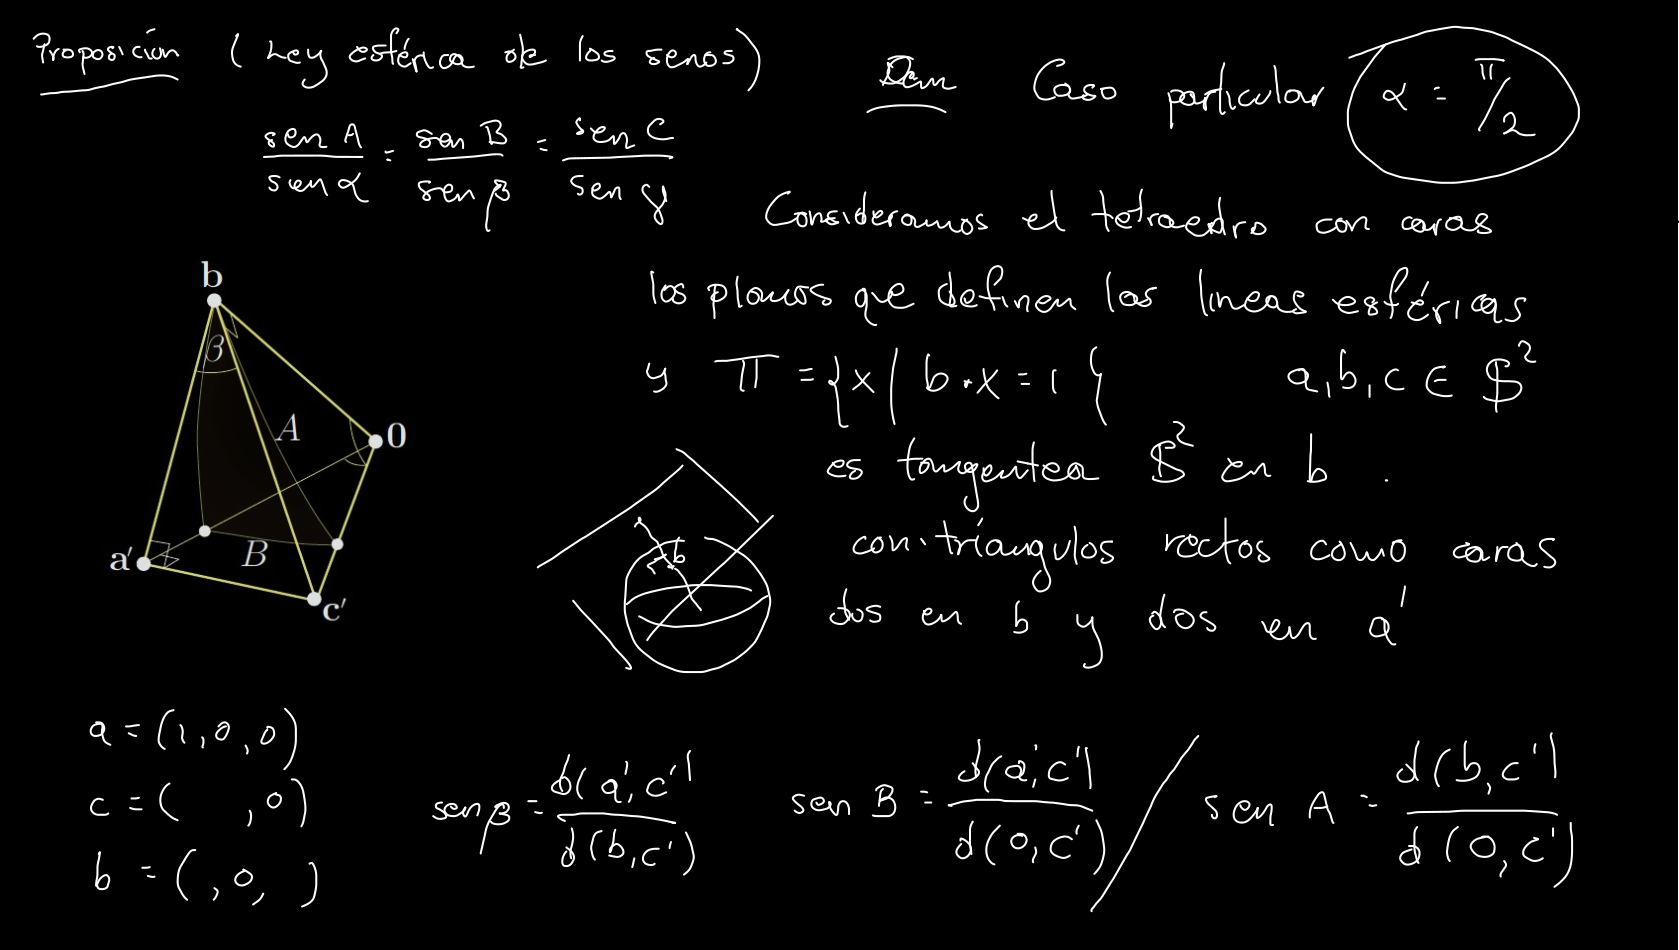 Proposición (Ley esférica de los senos)
sen A / sen α = sen B / sen β = sen C / sen γ
Dem Caso particular α = π/2
Consideramos el tetraedro con caras
los planos que definen las lineas esféricas
y Π = {x | b · x = 1} a, b, c ∈ 𝕊²
es tangente a 𝕊² en b.
con triángulos rectos como caras
dos en b y dos en a'
b
β
A
0
a'
B
c'
b
a = (1, 0, 0)
c = ( , 0)
b = ( , 0, )
sen β = d(a', c') / d(b, c')
sen B = d(a', c') / d(0, c')
sen A = d(b, c') / d(0, c')